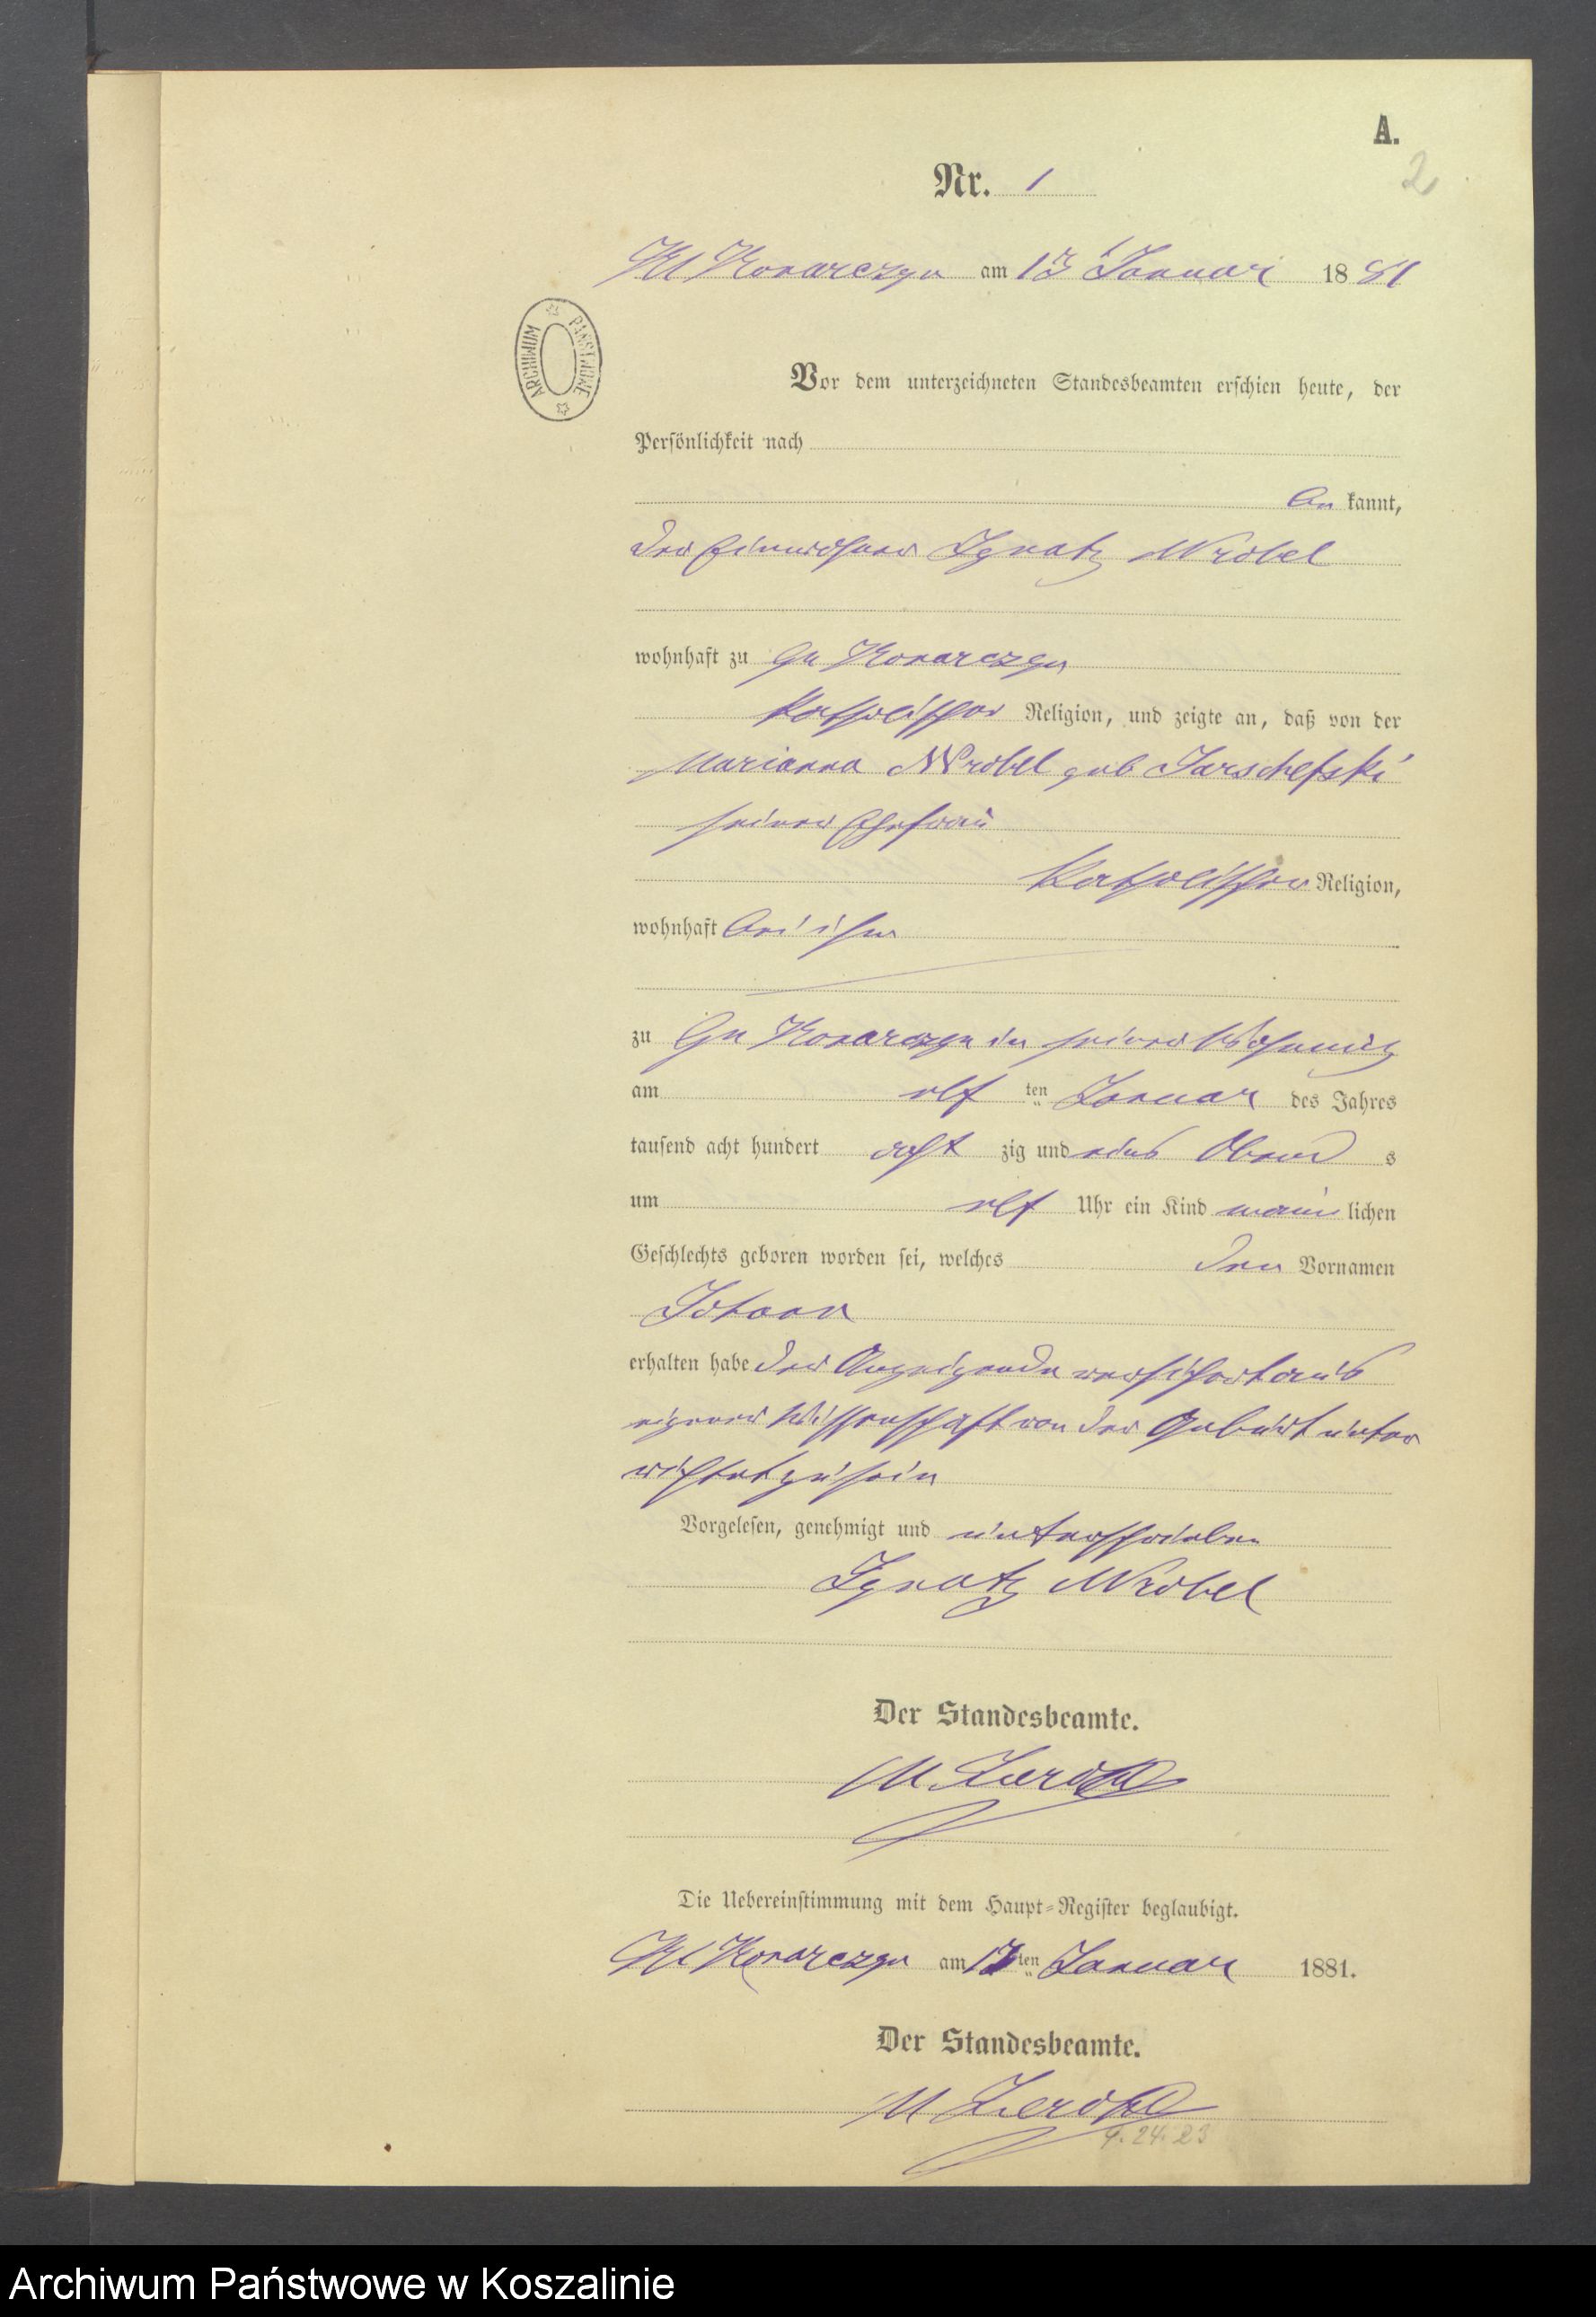 A.
2
Nr. 1
Kl Konarczyn am 13 Januar 1881
ARCHIWUM PAŃSTWOWE
Vor dem unterzeichneten Standesbeamten erschien heute, der
Persönlichkeit nach
be kannt,
der Einwohner Ignatz Wrobel
wohnhaft zu Gr Konarczyn
katholischer Religion, und zeigte an, daß von der
Marianna Wrobel geb Jarschefski
seiner Ehefrau
katholischer Religion,
wohnhaft bei ihm
zu Gr Konarczyn in seiner Wohnung
am elf ten Januar des Jahres
tausend acht hundert acht zig und eins Abend s
um elf Uhr ein Kind männ lichen
Geschlechts geboren worden sei, welches den Vornamen
Johann
erhalten habe der Anzeigende versichert aus
eigener Wissenschaft von der Geburt unter
richtet zu sein
Vorgelesen, genehmigt und unterschrieben
Ignatz Wrobel
Der Standesbeamte.
M.
Die Uebereinstimmung mit dem Haupt-Register beglaubigt.
Kl Konarczyn am ten Januar 1881.
Der Standesbeamte.
M
4.24.23
Archiwum Państwowe w Koszalinie